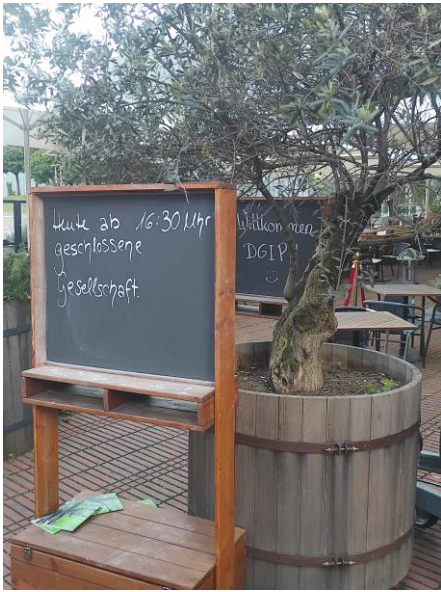 Heute ab 16:30 Uhr
geschlossene
Gesellschaft.
Willkommen
DGIP